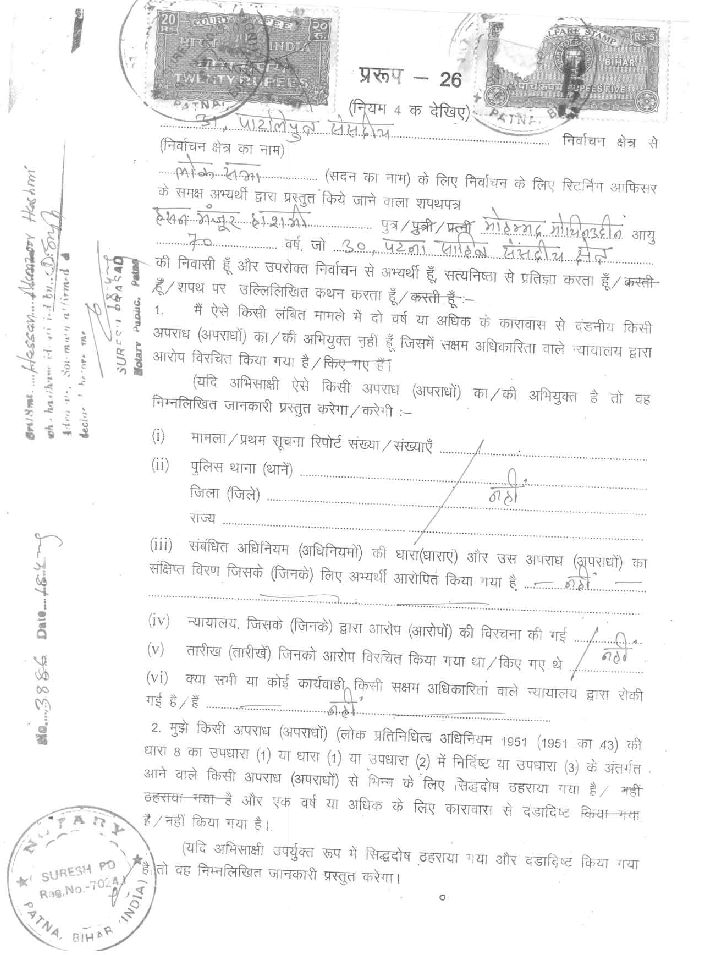 20 COURT FEE २०
INDIA
TWENTY RUPEES
PATNA
WELFARE STAMP Rs.5
BIHAR
RUPEES FIVE
PATNA, B
प्ररूप – 26
(नियम 4 क देखिए)
31, पाटलिपुत्र संसदीय निर्वाचन क्षेत्र से
(निर्वाचन क्षेत्र का नाम)
लोक सभा (सदन का नाम) के लिए निर्वाचन के लिए रिटर्निंग आफिसर
के समक्ष अभ्यर्थी द्वारा प्रस्तुत किये जाने वाला शपथपत्र
हसन मंजूर हाशमी पुत्र/पुत्री/पत्नी मोहम्मद मोयिनउद्दीन आयु
70 वर्ष, जो 30, पटना साहिब संसदीय क्षेत्र
की निवासी हूँ और उपरोक्त निर्वाचन से अभ्यर्थी हूँ, सत्यनिष्ठा से प्रतिज्ञा करता हूँ/करती
हूँ/शपथ पर उल्लिलिखित कथन करता हूँ/करती हूँ:–
1. मैं ऐसे किसी लंबित मामले में दो वर्ष या अधिक के कारावास से दंडनीय किसी
अपराध (अपराधों) का/की अभियुक्त नहीं हूँ जिसमें सक्षम अधिकारिता वाले न्यायालय द्वारा
आरोप विरचित किया गया है/किए गए हैं।
(यदि अभिसाक्षी ऐसे किसी अपराध (अपराधों) का/की अभियुक्त है तो वह
निम्नलिखित जानकारी प्रस्तुत करेगा/करेगी :–
(i) मामला/प्रथम सूचना रिपोर्ट संख्या/संख्याएँ
(ii) पुलिस थाना (थानें)
जिला (जिले) नहीं
राज्य
(iii) संबंधित अधिनियम (अधिनियमों) की धारा(धाराएं) और उस अपराध (अपराधों) का
संक्षिप्त विरण जिसके (जिनके) लिए अभ्यर्थी आरोपित किया गया है – नहीं –
(iv) न्यायालय, जिसके (जिनके) द्वारा आरोप (आरोपों) की विरचना की गई
(v) तारीख (तारीखें) जिनको आरोप विरचित किया गया था/किए गए थे नहीं
(vi) क्या सभी या कोई कार्यवाही किसी सक्षम अधिकारिता वाले न्यायालय द्वारा रोकी
गई है/हैं नहीं
2. मुझे किसी अपराध (अपराधों) (लोक प्रतिनिधित्व अधिनियम 1951 (1951 का 43) की
धारा 8 का उपधारा (1) या धारा (1) या उपधारा (2) में निर्दिष्ट या उपधारा (3) के अंतर्गत
आने वाले किसी अपराध (अपराधों) से भिन्न के लिए सिद्धदोष ठहराया गया है/ नहीं
ठहराया गया है और एक वर्ष या अधिक के लिए कारावास से दंडादिष्ट किया गया
है/नहीं किया गया है।
(यदि अभिसाक्षी उपर्युक्त रूप में सिद्धदोष ठहराया गया और दंडादिष्ट किया गया
है तो वह निम्नलिखित जानकारी प्रस्तुत करेगा।
Hassan Manzoor Hashmi
SURESH PRASAD
Notary Public, Patna
No. 3886 Date
NOTARY
SURESH PD
Reg.No.-7024
PATNA, BIHAR (INDIA)